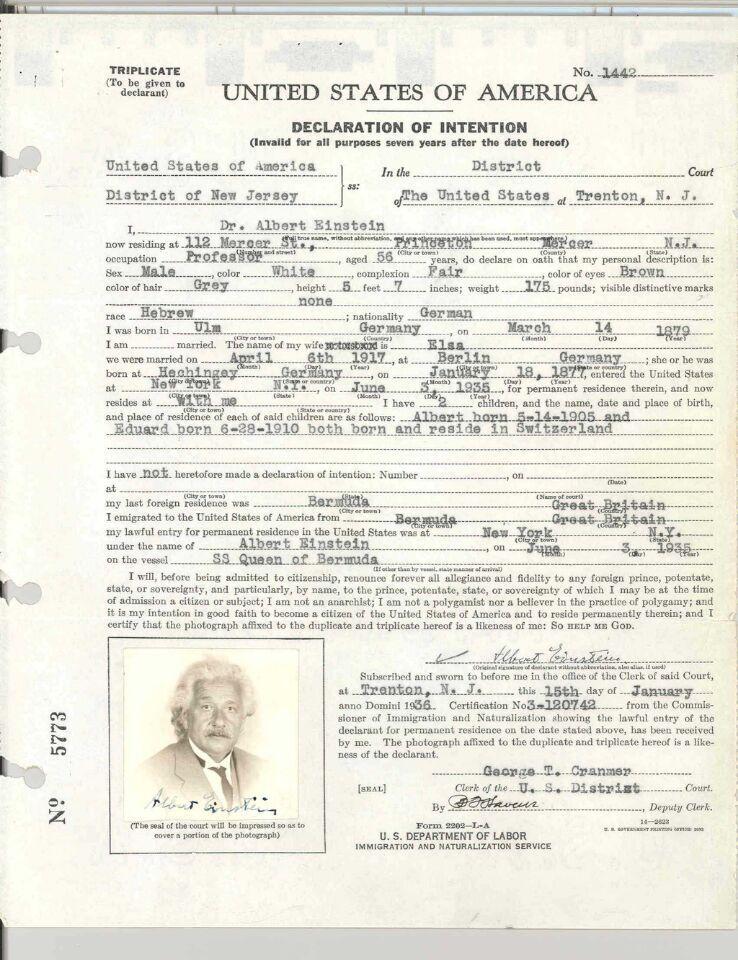 TRIPLICATE
(To be given to
declarant)
No. 1442
UNITED STATES OF AMERICA
DECLARATION OF INTENTION
(Invalid for all purposes seven years after the date hereof)
United States of America
District of New Jersey
ss:
In the District Court
of The United States at Trenton, N. J.
I, Dr. Albert Einstein
(Full true name, without abbreviation, and any other name which has been used, must appear here)
now residing at 112 Mercer St., Princeton Mercer N.J.
(Number and street) (City or town) (County) (State)
occupation Professor, aged 56 years, do declare on oath that my personal description is:
Sex Male, color White, complexion Fair, color of eyes Brown
color of hair Grey, height 5 feet 7 inches; weight 175 pounds; visible distinctive marks
none
race Hebrew; nationality German
I was born in Ulm Germany, on March 14 1879
(City or town) (Country) (Month) (Day) (Year)
I am married. The name of my wife is Elsa
we were married on April 6th 1917, at Berlin Germany; she or he was
(Month) (Day) (Year) (City or town) (State or country)
born at Hechingey Germany, on January 18, 1877, entered the United States
(City or town) (State or country) (Month) (Day) (Year)
at New York N.Y., on June 3, 1935, for permanent residence therein, and now
(City or town) (State) (Month) (Day) (Year)
resides at With me I have 2 children, and the name, date and place of birth,
(City or town) (State or country)
and place of residence of each of said children are as follows: Albert born 5-14-1905 and
Eduard born 6-28-1910 both born and reside in Switzerland
I have not heretofore made a declaration of intention: Number, on
(Date)
at
(City or town) (State) (Name of court)
my last foreign residence was Bermuda Great Britain
(City or town) (Country)
I emigrated to the United States of America from Bermuda Great Britain
(City or town) (Country)
my lawful entry for permanent residence in the United States was at New York N.Y.
(City or town) (State)
under the name of Albert Einstein, on June 3, 1935
(Month) (Day) (Year)
on the vessel SS Queen of Bermuda
(If other than by vessel, state manner of arrival)
I will, before being admitted to citizenship, renounce forever all allegiance and fidelity to any foreign prince, potentate,
state, or sovereignty, and particularly, by name, to the prince, potentate, state, or sovereignty of which I may be at the time
of admission a citizen or subject; I am not an anarchist; I am not a polygamist nor a believer in the practice of polygamy; and
it is my intention in good faith to become a citizen of the United States of America and to reside permanently therein; and I
certify that the photograph affixed to the duplicate and triplicate hereof is a likeness of me: SO HELP ME GOD.
Albert Einstein
(Original signature of declarant without abbreviation, also alias, if used)
Subscribed and sworn to before me in the office of the Clerk of said Court,
at Trenton, N. J. this 15th day of January
anno Domini 1936. Certification No 3-120742 from the Commis-
sioner of Immigration and Naturalization showing the lawful entry of the
declarant for permanent residence on the date stated above, has been received
by me. The photograph affixed to the duplicate and triplicate hereof is a like-
ness of the declarant.
George T. Cranmer
[SEAL] Clerk of the U. S. District Court.
By, Deputy Clerk.
Albert Einstein
(The seal of the court will be impressed so as to
cover a portion of the photograph)
No 5773
Form 2202-L-A
U. S. DEPARTMENT OF LABOR
IMMIGRATION AND NATURALIZATION SERVICE
14-2623
U. S. GOVERNMENT PRINTING OFFICE